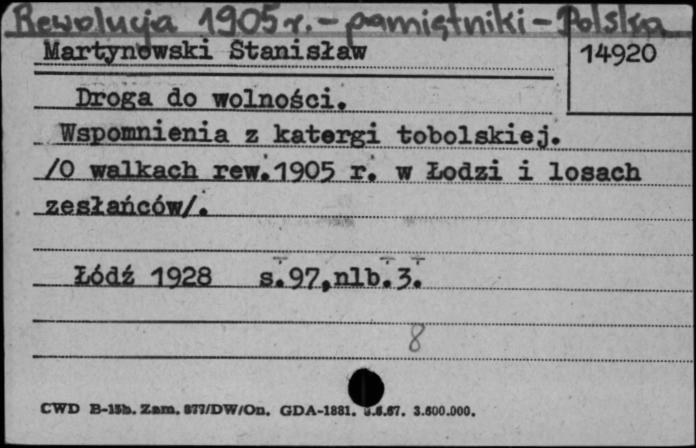 Rewolucja 1905 r. - pamiętniki - Polska
Martynowski Stanisław
14920
Droga do wolności.
Wspomnienia z katorgi tobolskiej.
/O walkach rew.1905 r. w Łodzi i losach
zesłańców/.
Łódź 1928 s.97,nlb.3.
8
CWD B-15b. Zam. 877/DW/On. GDA-1881. 3.600.000.